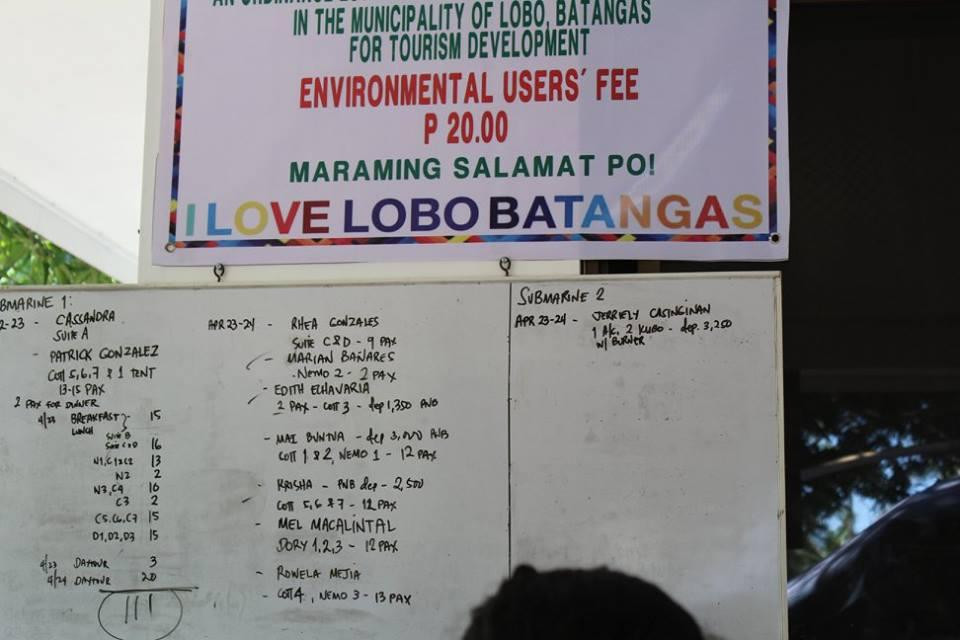 IN THE MUNICIPALITY OF LOBO, BATANGAS
FOR TOURISM DEVELOPMENT
ENVIRONMENTAL USERS' FEE
P 20.00
MARAMING SALAMAT PO!
I LOVE LOBO BATANGAS
BMARINE 1:
2-23 - CASSANDRA
SUITE A
- PATRICK GONZALEZ
COTT 5,6,7 & 1 TENT
13-15 PAX
2 PAX FOR DINNER
4/23 BREAKFAST 15
LUNCH
SUITE B
SUITE C&D 16
N1, C1&C2 13
N2 2
N3, C4 10
C3 2
C5, C6, C7 15
D1, D2, D3 15
4/23 DAYTOUR 3
4/24 DAYTOUR 20
111
APR 23-24 - RHEA GONZALES
SUITE C&D - 9 PAX
- MARIAN BAÑARES
- NEMO 2 - 2 PAX
- EDITH ELHAVARIA
2 PAX - COTT 3 - dep 1,350 PNB
- MAI BUNTVA - dep 3,000 PNB
COTT 1 & 2, NEMO 1 - 12 PAX
- KRISHA - PNB dep - 2,500
COTT 5,6 & 7 - 12 PAX
- MEL MACALINTAL
DORY 1,2,3 - 12 PAX
- ROWELA MEJIA
- COTT 4, NEMO 3 - 13 PAX
SUBMARINE 2
APR 23-24 - JERRIELY CASINGINAN
1 A/C, 2 KUBO - dep. 3,250
W/ BURNER